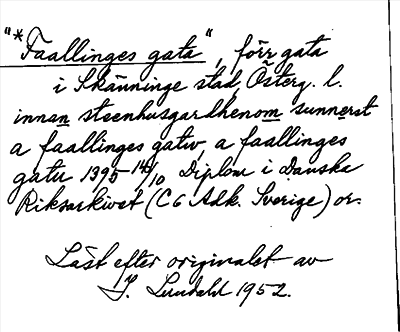 "*Faallinges gata", förr gata
i Skänninge stad, Österg. l.
innan steenhusgardhenom sunnerst
a faallinges gatw, a faallinges
gatu 1395 14/10 Diplom i Danska
Riksarkivet (C6 Adk. Sverige) or.
Läst efter originalet av
J. Lundahl 1952.